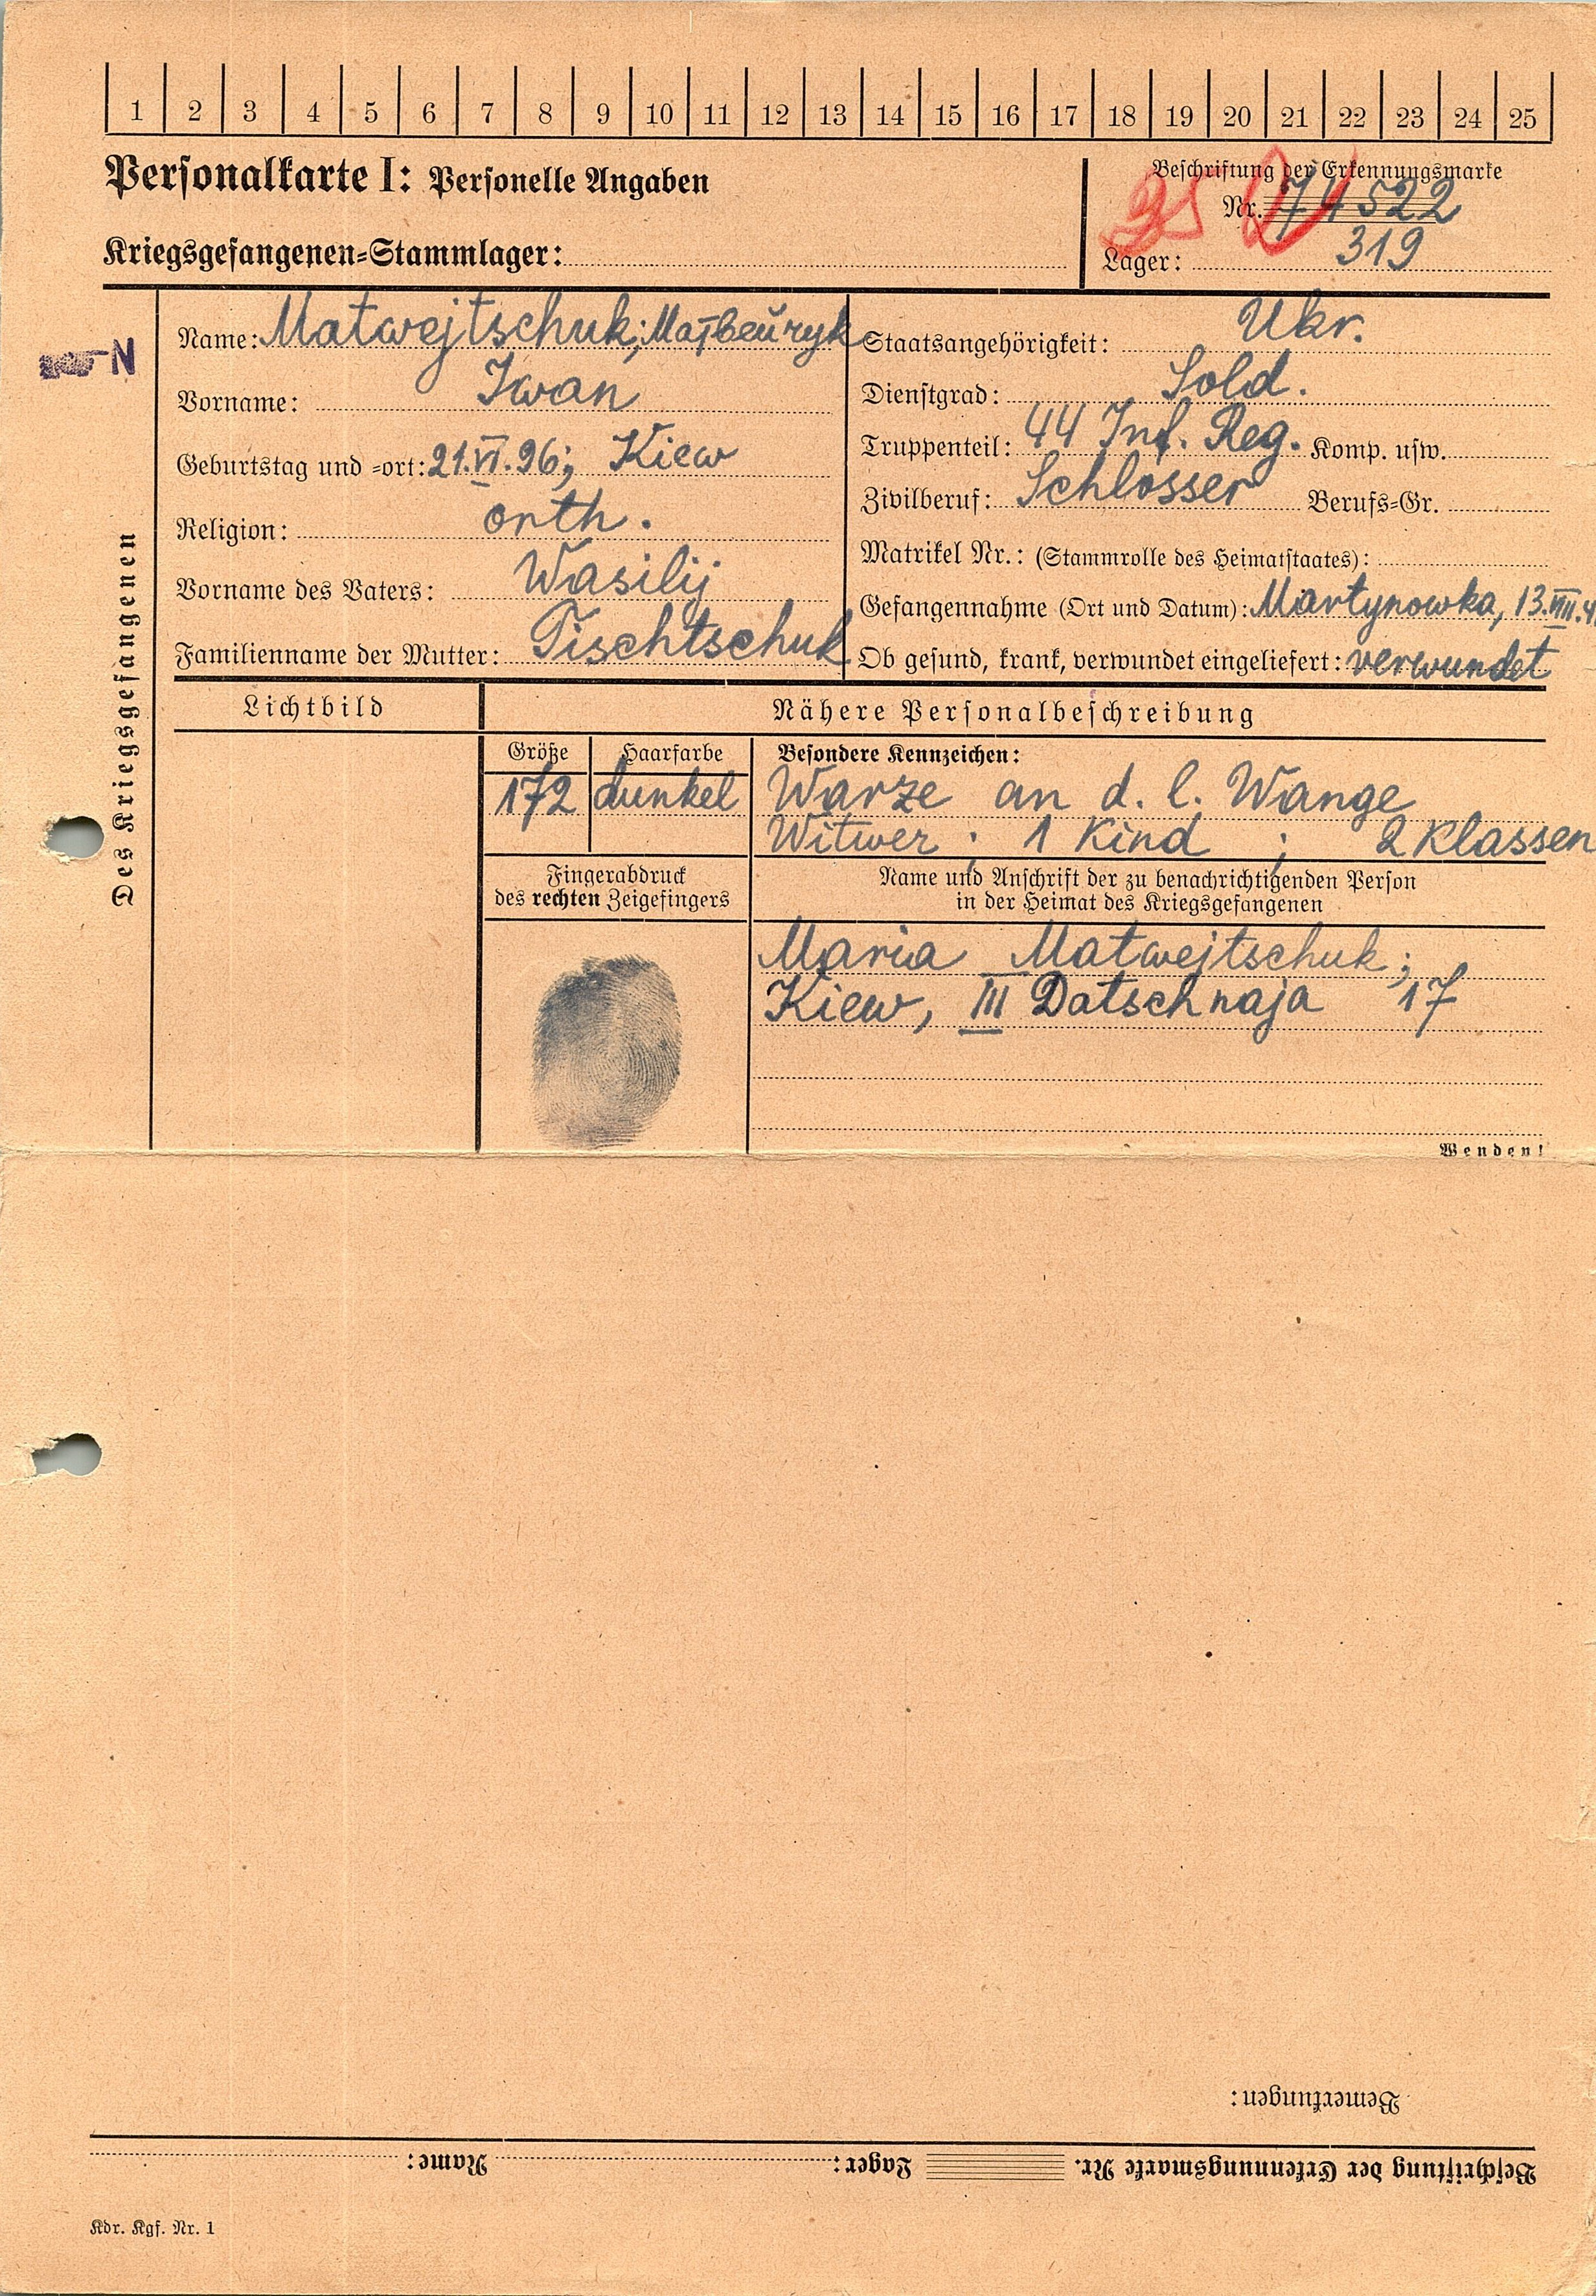 1 2 3 4 5 6 7 8 9 10 11 12 13 14 15 16 17 18 19 20 21 22 23 24 25
Personalkarte I: Personelle Angaben
Beschriftung der Erkennungsmarke
Nr. 74522
Kriegsgefangenen-Stammlager:
Lager: 319
N
Des Kriegsgefangenen
Name: Matwejtschuk; Матвейчук
Vorname: Iwan
Geburtstag und -ort: 21.VI.96; Kiew
Religion: orth.
Vorname des Vaters: Wasilij
Familienname der Mutter: Tischtschuk
Staatsangehörigkeit: Ukr.
Dienstgrad: Sold.
Truppenteil: 44 Inf. Reg. Komp. usw.
Zivilberuf: Schlosser Berufs-Gr.
Matrikel Nr.: (Stammrolle des Heimatstaates):
Gefangennahme (Ort und Datum): Martynowka, 13.VIII.41
Ob gesund, krank, verwundet eingeliefert: verwundet
Lichtbild
Nähere Personalbeschreibung
Größe
172
Haarfarbe
dunkel
Besondere Kennzeichen:
Warze an d. l. Wange
Witwer; 1 Kind; 2 Klassen
Fingerabdruck
des rechten Zeigefingers
Name und Anschrift der zu benachrichtigenden Person
in der Heimat des Kriegsgefangenen
Maria Matwejtschuk;
Kiew, III Datschnaja 17
Wenden!
Bemerkungen:
Beschriftung der Erkennungsmarke Nr. Lager: Name:
Kdr. Kgf. Nr. 1